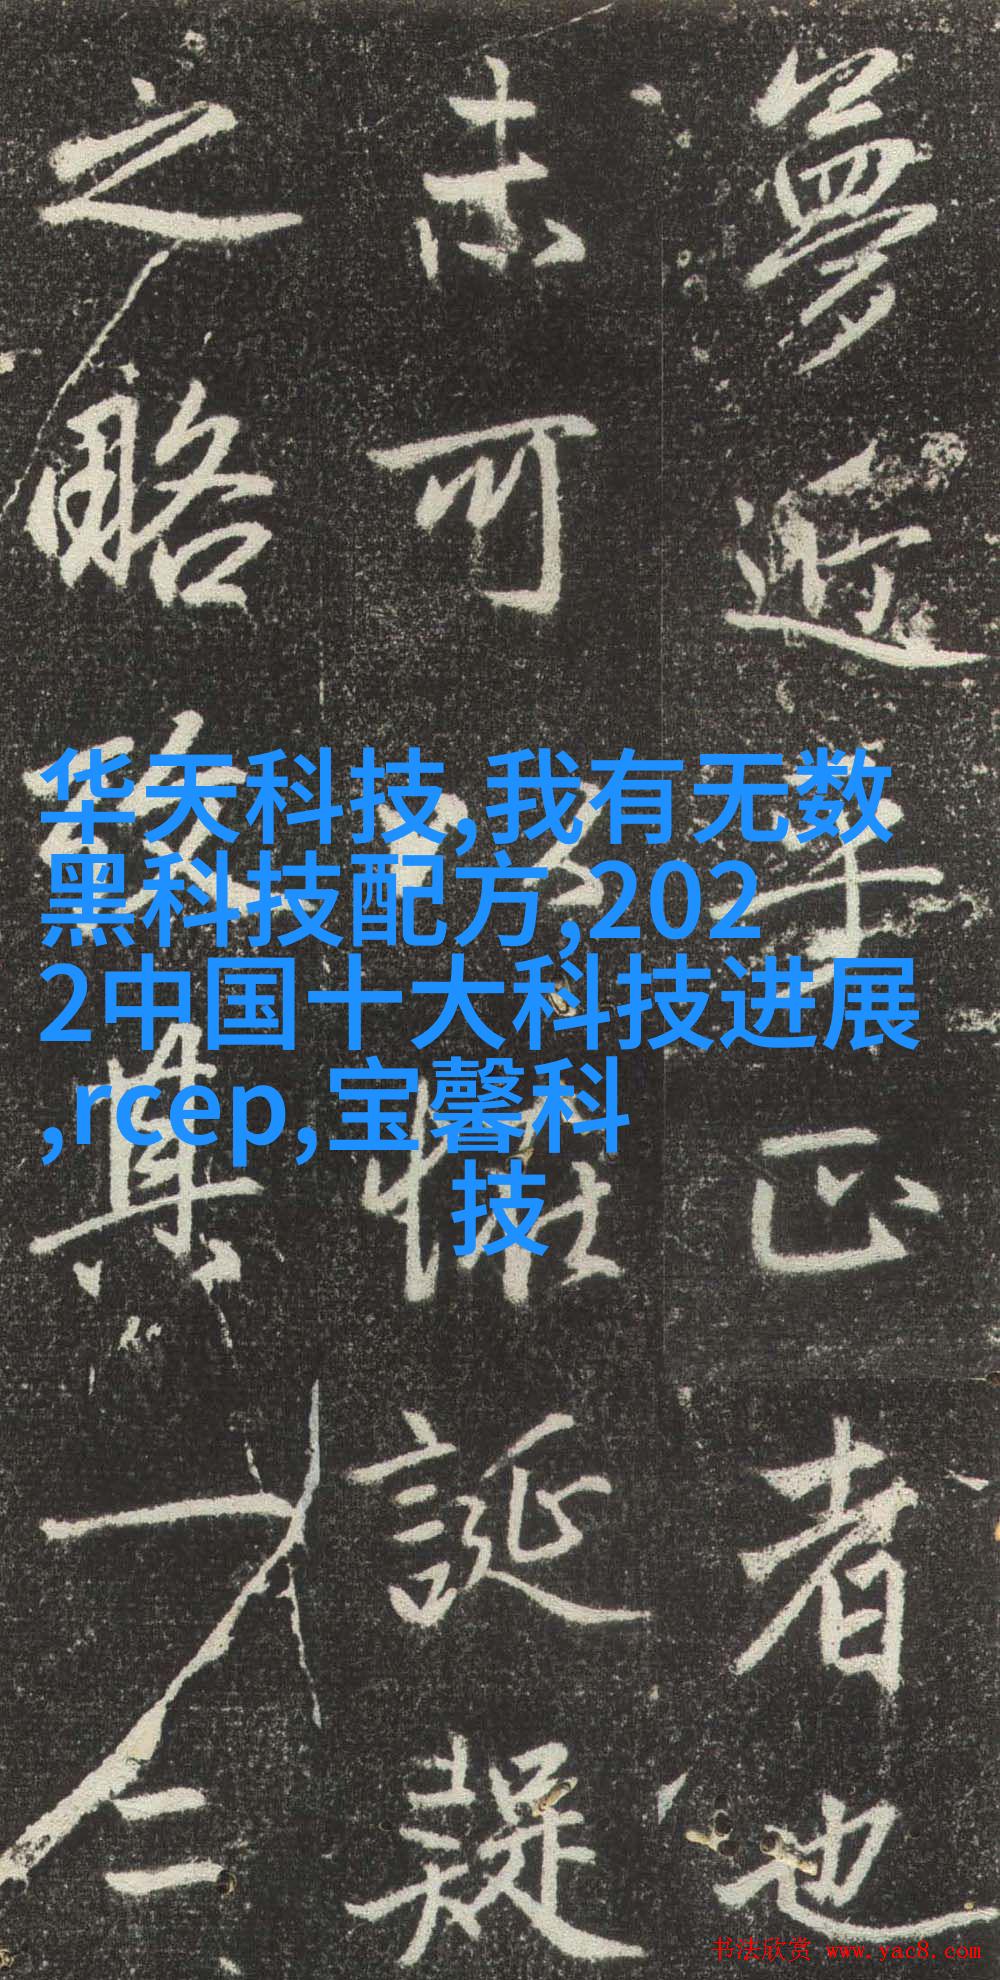 夢近年正者也
可以恠誕疑
之略其一二
华天科技,我有无数
黑科技配方,202
2中国十大科技进展
,rcep,宝馨科
技
书法欣赏 www.yac8.com